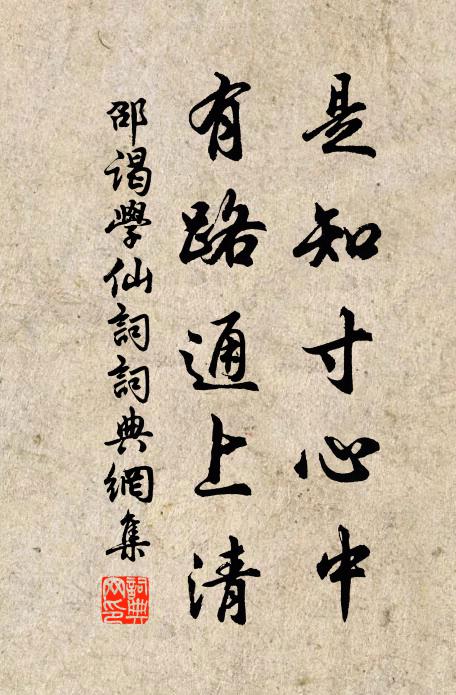 是知寸心中
有路通上清
邵謁學仙詞詞典網集
詞典网印